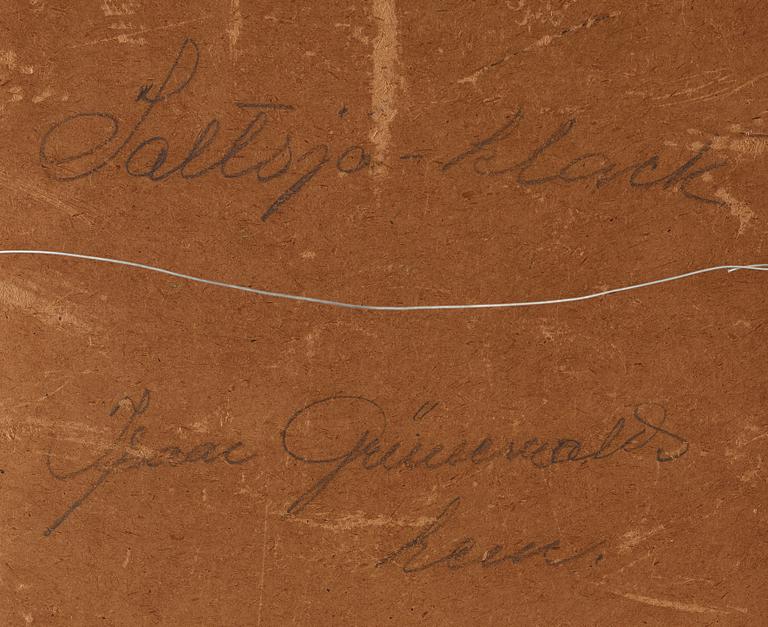 Saltsjö-klack
Isaac Grünewalds
hem.